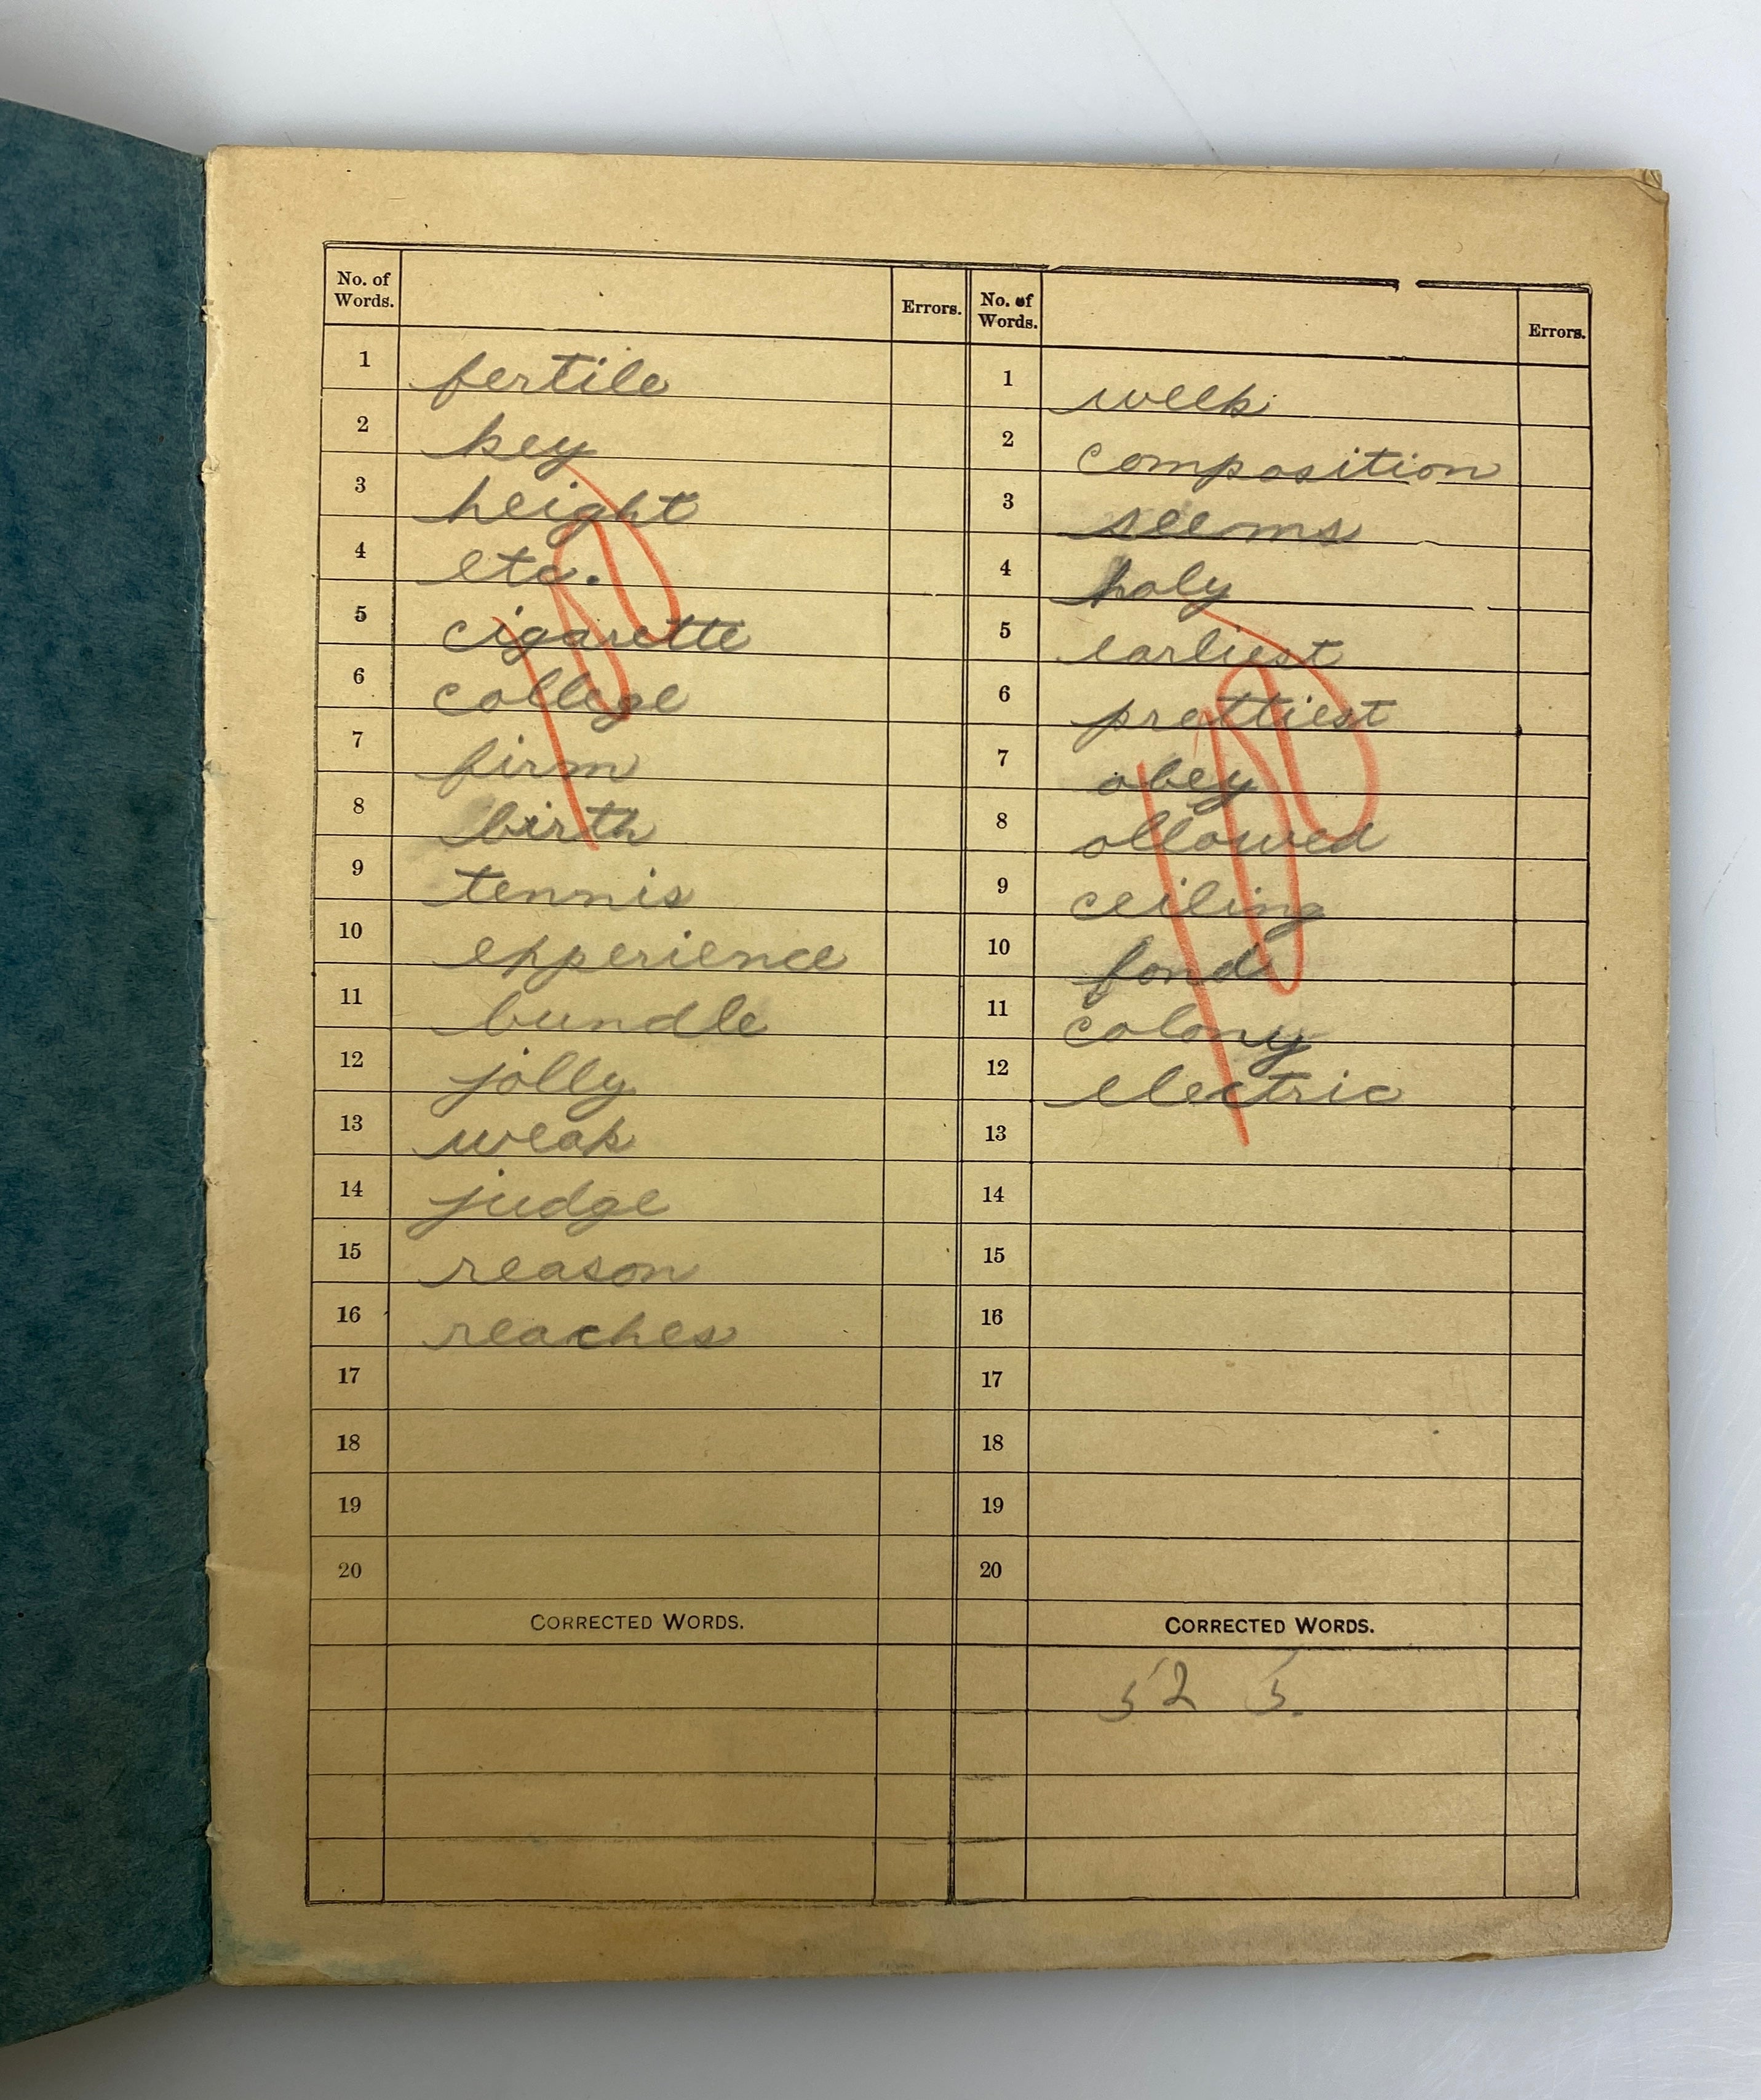 No. of Words. Errors.
1 fertile
2 key
3 height
4 etc.
5 cigarette
6 college
7 firm
8 birth
9 tennis
10 experience
11 bundle
12 jolly
13 weak
14 judge
15 reason
16 reaches
17
18
19
20
100
CORRECTED WORDS.
No. of Words. Errors.
1 week
2 composition
3 seems
4 holy
5 earliest
6 prettiest
7 obey
8 allowed
9 ceiling
10 fond
11 colony
12 electric
13
14
15
16
17
18
19
20
100
CORRECTED WORDS.
52 5.